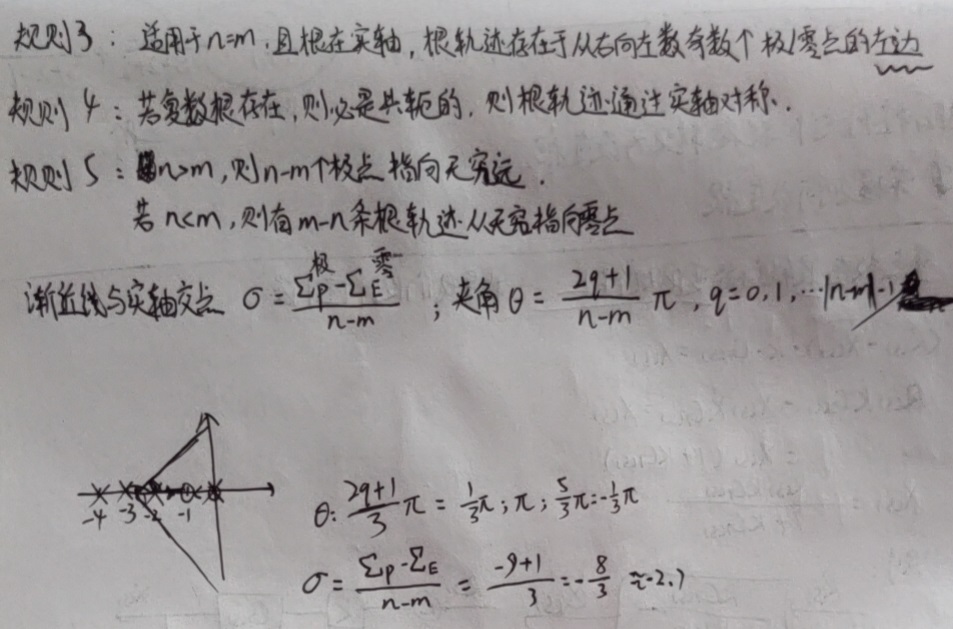 规则3：适用于n=m，且根在实轴，根轨迹存在于从右向左数奇数个极/零点的左边
规则4：若复数根存在，则必是共轭的，则根轨迹通过实轴对称．
规则5：n>m，则n-m个极点指向无穷远．
若n<m，则有m-n条根轨迹从无穷指向零点
极 零
渐近线与实轴交点 σ = (Σp - ΣE)/(n-m)；夹角θ = (2q+1)/(n-m) π，q=0,1,…|n-m|-1
-4 -3 -2 -1
θ: (2q+1)/3 π = 1/3π；π；5/3π=-1/3π
σ = (Σp - ΣE)/(n-m) = (-9+1)/3 = -8/3 ≈-2.7